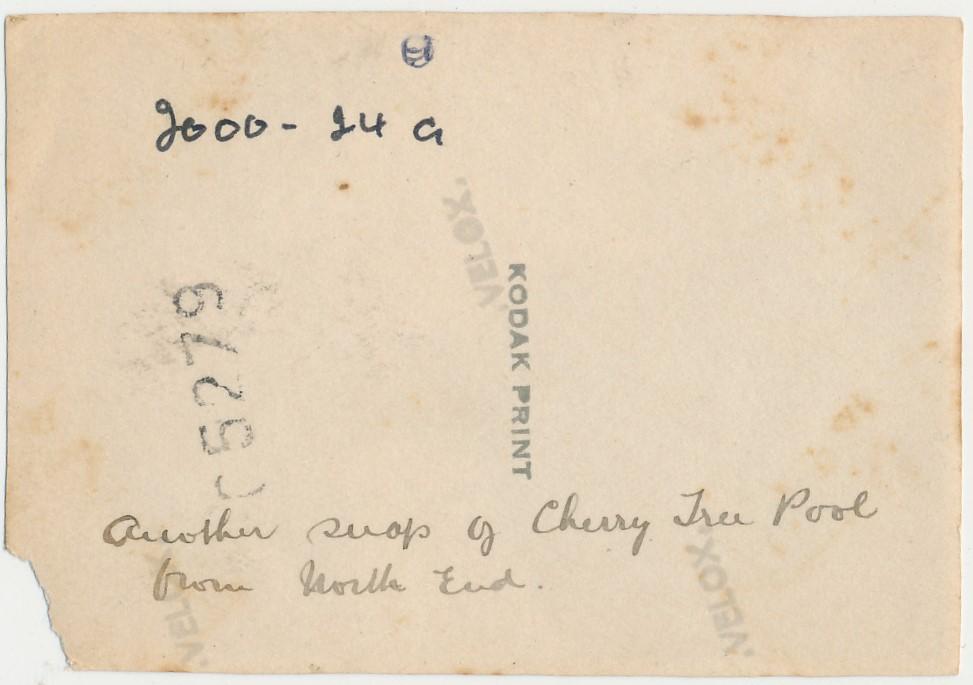 2000 - 24 G
VELOX.
KODAK PRINT
5279
Another snap of Cherry Tree Pool
from North End.
VELOX.
VELOX.